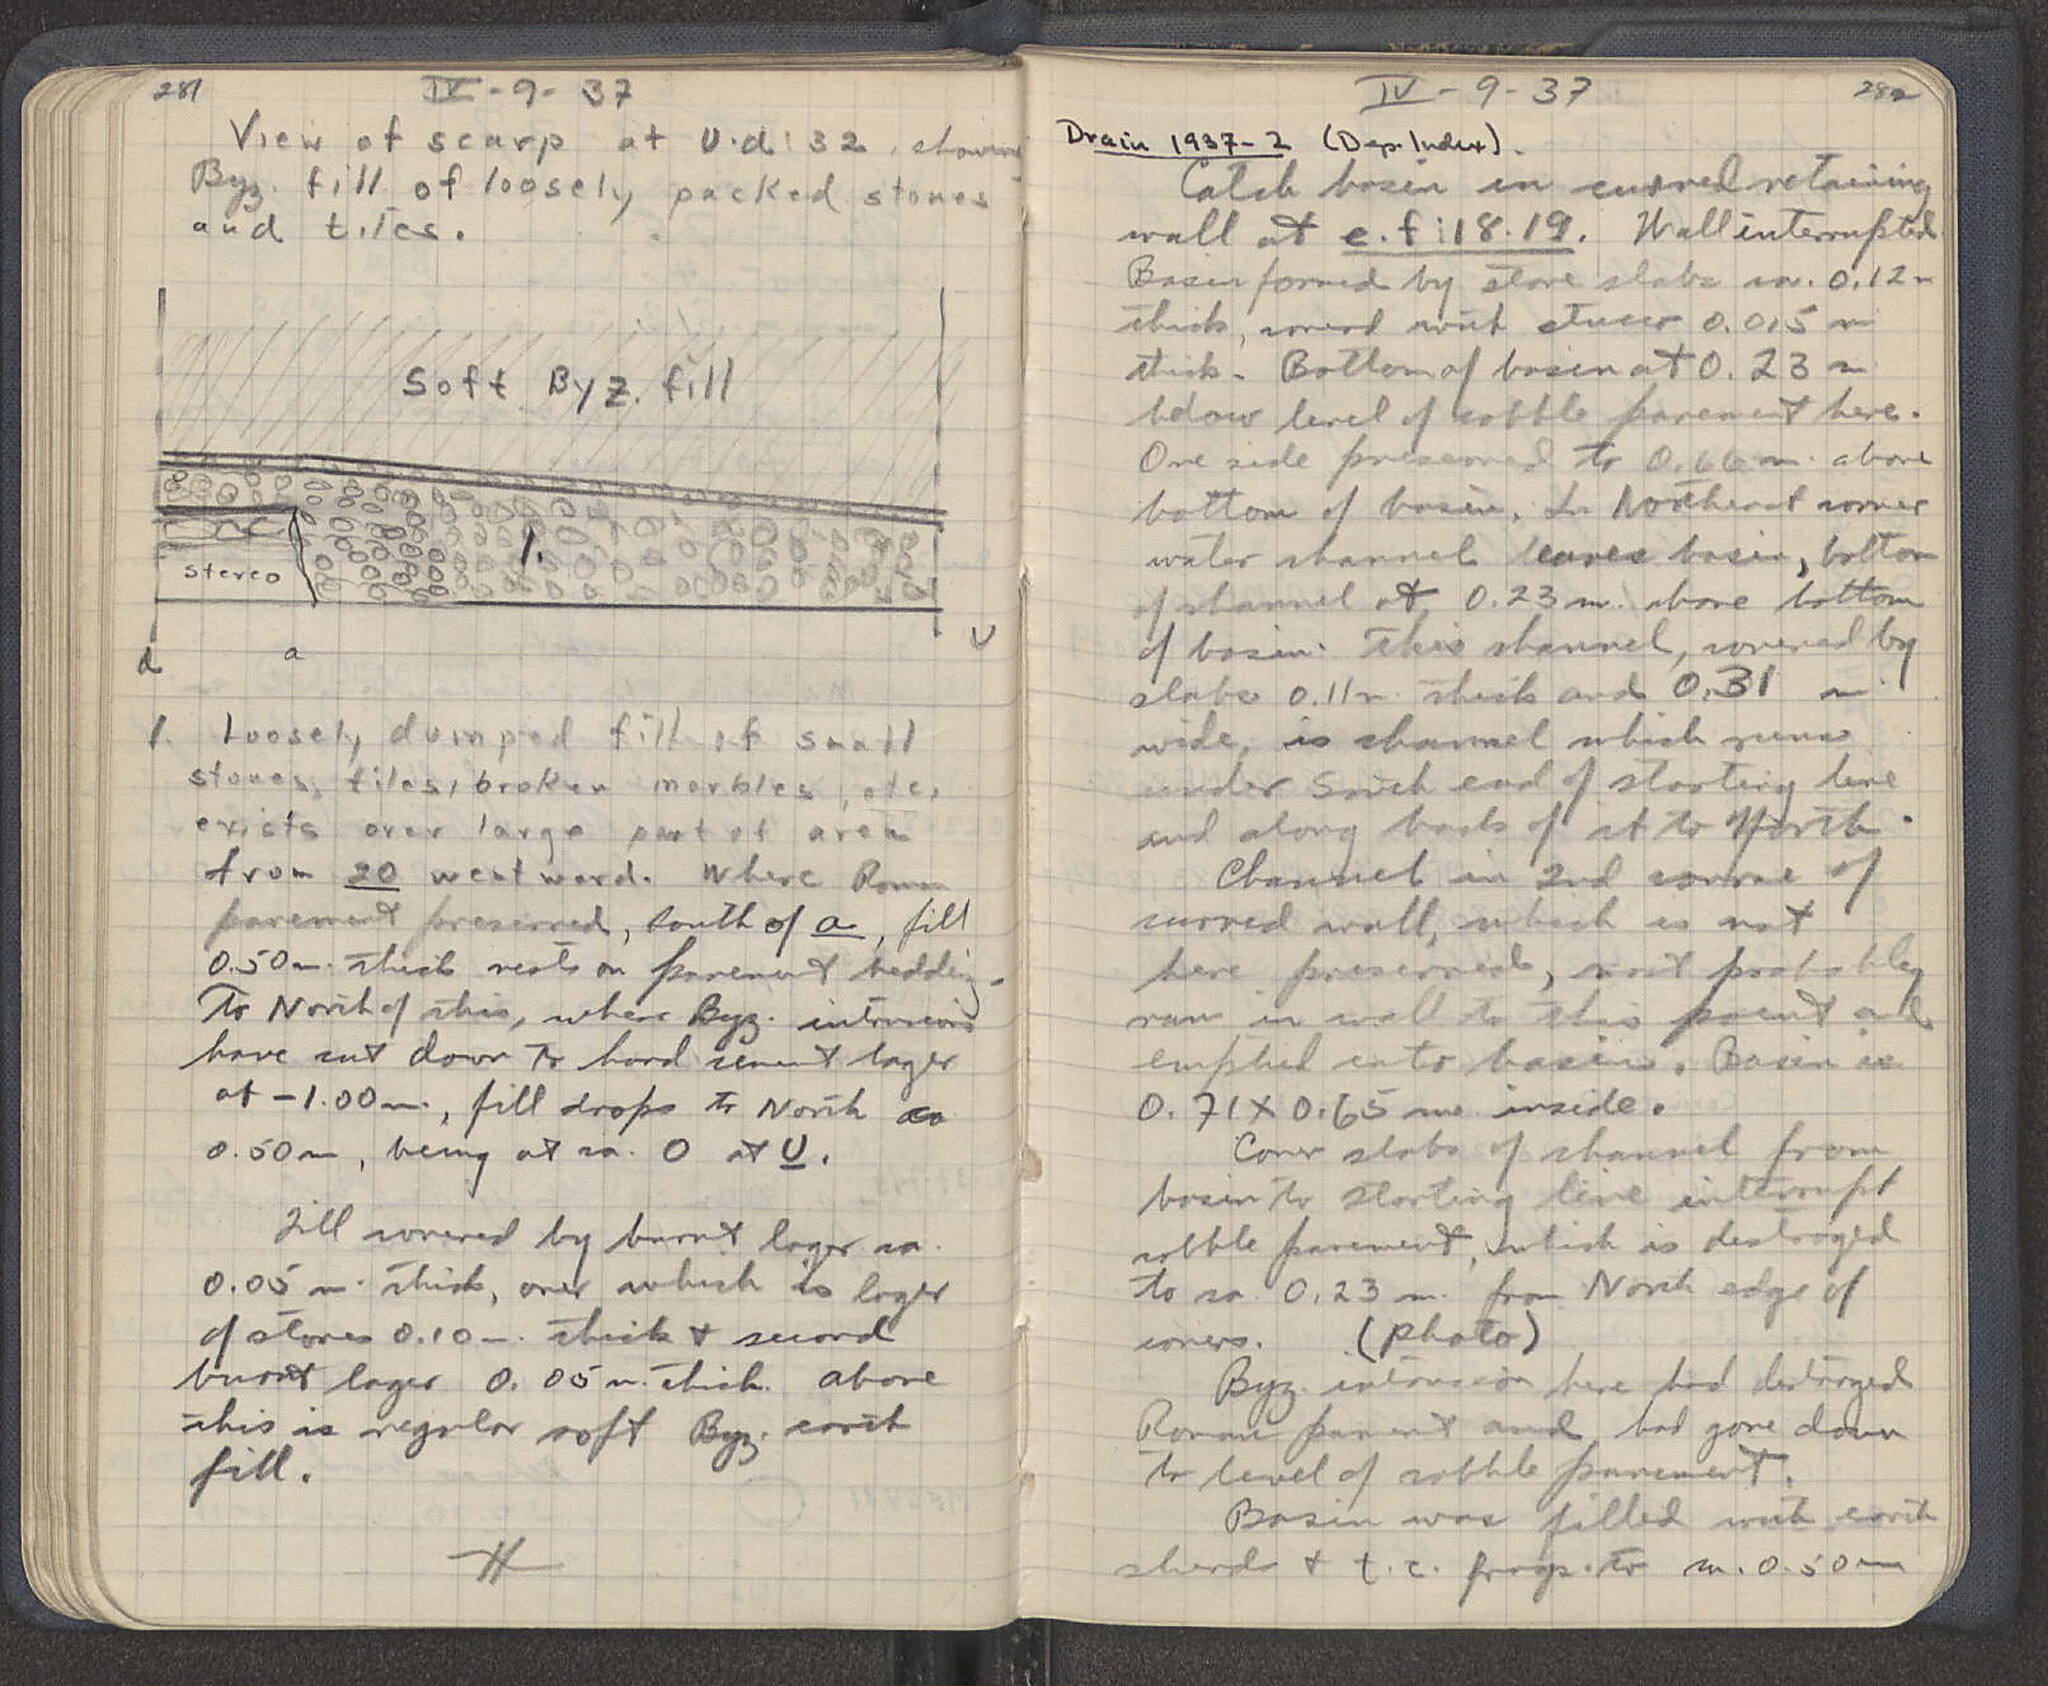 281
IV - 9 - 37
View of scarp at U.d:32, showing
Byz. fill of loosely packed stones
and tiles.
Soft Byz. fill
1.
stereo
d
a
U
1. Loosely dumped fill of small
stones, tiles, broken marbles, etc,
exists over large part of area
from 20 westward. Where Roman
pavement preserved, south of a, fill
0.50m. thick rests on pavement bedding.
To North of this, where Byz. intrusions
have cut down to hard cement layer
at -1.00m., fill drops to North ca
0.50m, being at ca. 0 at U.
Fill covered by burnt layer ca.
0.05 m. thick, over which is layer
of stones 0.10m. thick & second
burnt layer 0.05m. thick. above
this is regular soft Byz. earth
fill.
282
IV - 9 - 37
Drain 1937-2 (Dep. Index).
Catch basin in curved retaining
wall at e.f:18.19. Wall interrupted
Basin formed by stone slabs ca. 0.12m
thick, covered with stucco 0.015 m
thick. Bottom of basin at 0.23 m
below level of cobble pavement here.
One side preserved to 0.66m. above
bottom of basin. In Northeast corner
water channel leaves basin, bottom
of channel at 0.23m. above bottom
of basin. This channel, covered by
slabs 0.11m. thick and 0.31 m
wide, is channel which runs
under South end of starting line
and along back of it to North.
Channel in 2nd course of
curved wall, which is not
here preserved, must probably
run in wall to this point and
emptied into basin. Basin is
0.71 x 0.65 m. inside.
Cover slabs of channel from
basin to starting line interrupt
cobble pavement, which is destroyed
to ca. 0.23 m. from North edge of
covers. (Photo)
Byz. intrusion here had destroyed
Roman pavement and had gone down
to level of cobble pavement.
Basin was filled with earth
sherds & t.c. frags. to ca. 0.50m